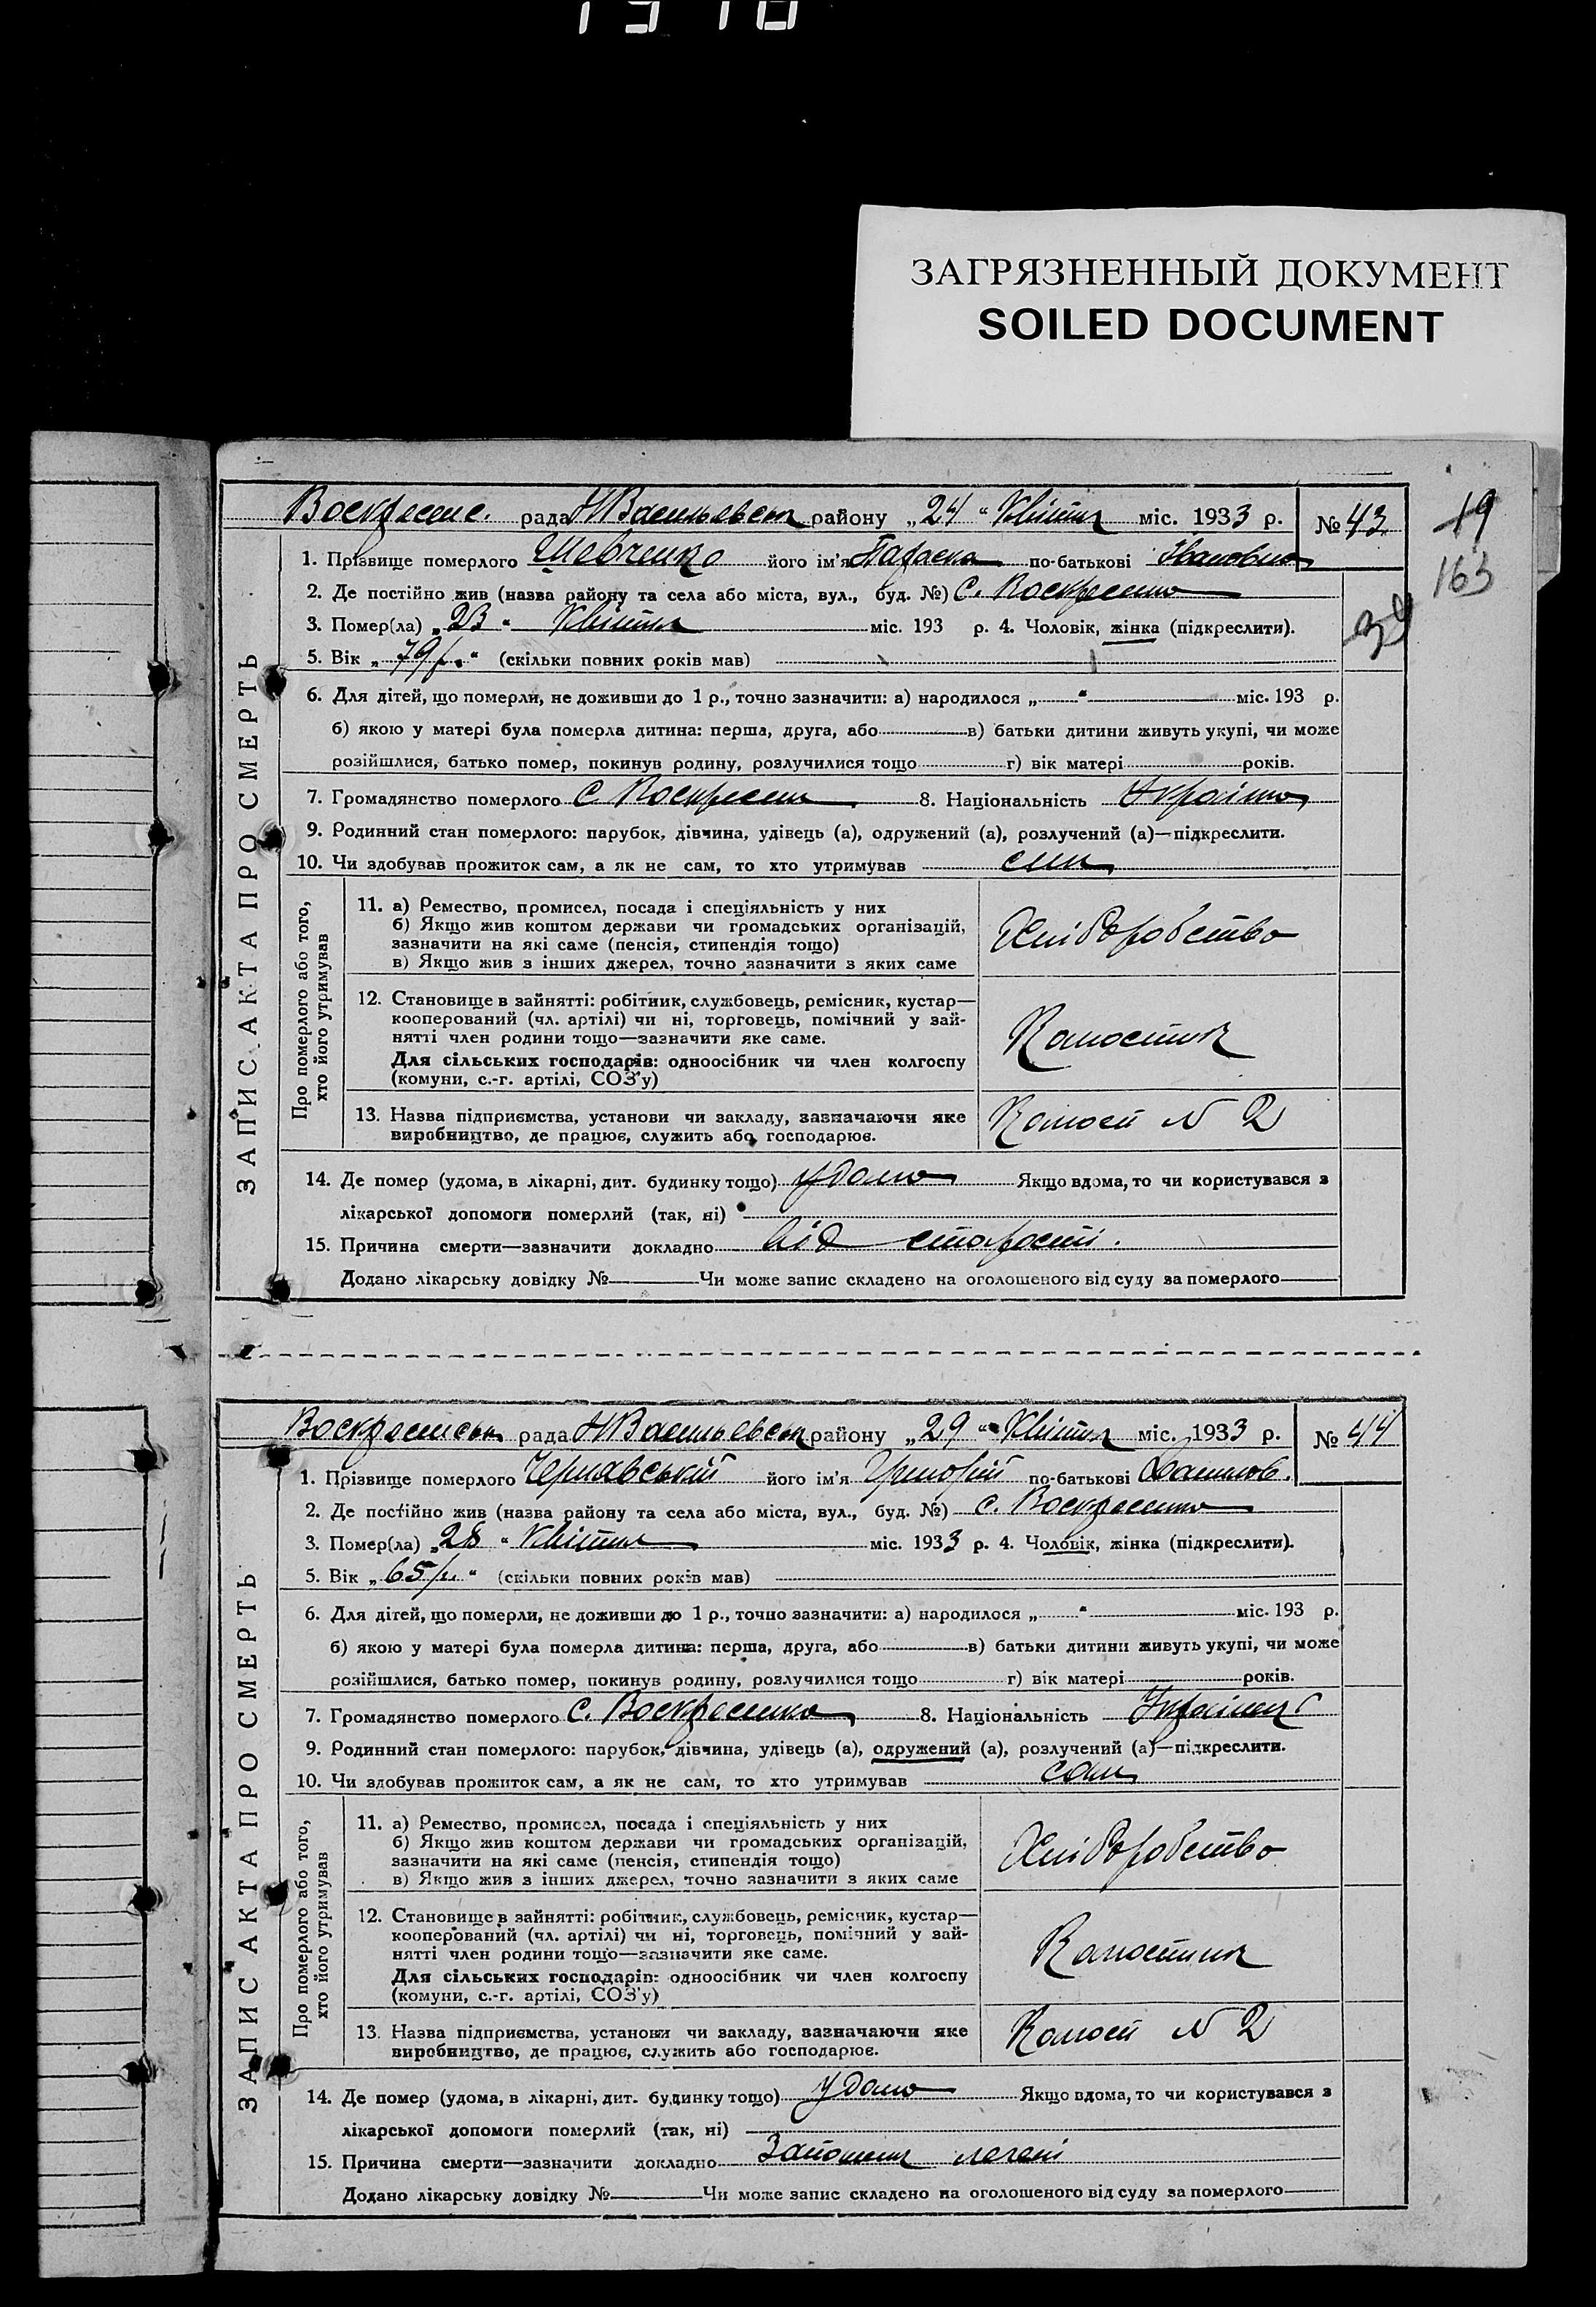 ЗАГРЯЗНЕННЫЙ ДОКУМЕНТ
SOILED DOCUMENT
19
163
39
ЗАПИС АКТА ПРО СМЕРТЬ
Воскресенс. рада НВасильевськ району „24“ Квітня міс. 1933 р. № 43
1. Прізвище померлого Шевченко його ім'я Параска по-батькові Івановна
2. Де постійно жив (назва району та села або міста, вул., буд. №) С. Воскресенка
3. Помер(ла) „23“ Квітня міс. 193 р. 4. Чоловік, жінка (підкреслити).
5. Вік „79 р.“ (скільки повних років мав)
6. Для дітей, що померли, не доживши до 1 р., точно зазначити: а) народилося „ “ міс. 193 р.
б) якою у матері була померла дитина: перша, друга, або в) батьки дитини живуть укупі, чи може
розійшлися, батько помер, покинув родину, розлучилися тощо г) вік матері років.
7. Громадянство померлого С. Воскресен 8. Національність Україн
9. Родинний стан померлого: парубок, дівчина, удівець (а), одружений (а), розлучений (а)—підкреслити.
10. Чи здобував прожиток сам, а як не сам, то хто утримував син
Про померлого або того,
хто його утримував
11. а) Ремество, промисел, посада і спеціяльність у них
б) Якщо жив коштом держави чи громадських організацій,
зазначити на які саме (пенсія, стипендія тощо)
в) Якщо жив з інших джерел, точно зазначити з яких саме
Хліборобство
12. Становище в зайнятті: робітник, службовець, ремісник, кустар—
кооперований (чл. артілі) чи ні, торговець, помічний у зай-
нятті член родини тощо—зазначити яке саме.
Для сільських господарів: одноосібник чи член колгоспу
(комуни, с.-г. артілі, СОЗ'у)
13. Назва підприємства, установи чи закладу, зазначаючи яке
виробництво, де працює, служить або господарює.
N 2
14. Де помер (удома, в лікарні, дит. будинку тощо) удома Якщо вдома, то чи користувався з
лікарської допомоги померлий (так, ні)
15. Причина смерти—зазначити докладно від старості.
Додано лікарську довідку № Чи може запис складено на оголошеного від суду за померлого
ЗАПИС АКТА ПРО СМЕРТЬ
Воскресенськ рада НВасильевськ району „29“ Квітня міс. 1933 р. № 44
1. Прізвище померлого Чернявський його ім'я Григорій по-батькові Данилов.
2. Де постійно жив (назва району та села або міста, вул., буд. №) с. Воскресенка
3. Помер(ла) „28“ Квітня міс. 1933 р. 4. Чоловік, жінка (підкреслити).
5. Вік „65 р.“ (скільки повних років мав)
6. Для дітей, що померли, не доживши до 1 р., точно зазначити: а) народилося „ “ міс. 193 р.
б) якою у матері була померла дитина: перша, друга, або в) батьки дитини живуть укупі, чи може
розійшлися, батько помер, покинув родину, розлучилися тощо г) вік матері років.
7. Громадянство померлого С. Воскресенка 8. Національність
9. Родинний стан померлого: парубок, дівчина, удівець (а), одружений (а), розлучений (а)—підкреслити.
10. Чи здобував прожиток сам, а як не сам, то хто утримував сам
Про померлого або того,
хто його утримував
11. а) Ремество, промисел, посада і спеціяльність у них
б) Якщо жив коштом держави чи громадських організацій,
зазначити на які саме (пенсія, стипендія тощо)
в) Якщо жив з інших джерел, точно зазначити з яких саме
Хліборобство
12. Становище в зайнятті: робітник, службовець, ремісник, кустар—
кооперований (чл. артілі) чи ні, торговець, помічний у зай-
нятті член родини тощо—зазначити яке саме.
Для сільських господарів: одноосібник чи член колгоспу
(комуни, с.-г. артілі, СОЗ'у)
13. Назва підприємства, установи чи закладу, зазначаючи яке
виробництво, де працює, служить або господарює.
N 2
14. Де помер (удома, в лікарні, дит. будинку тощо) удома Якщо вдома, то чи користувався з
лікарської допомоги померлий (так, ні)
15. Причина смерти—зазначити докладно легені
Додано лікарську довідку № Чи може запис складено на оголошеного від суду за померлого